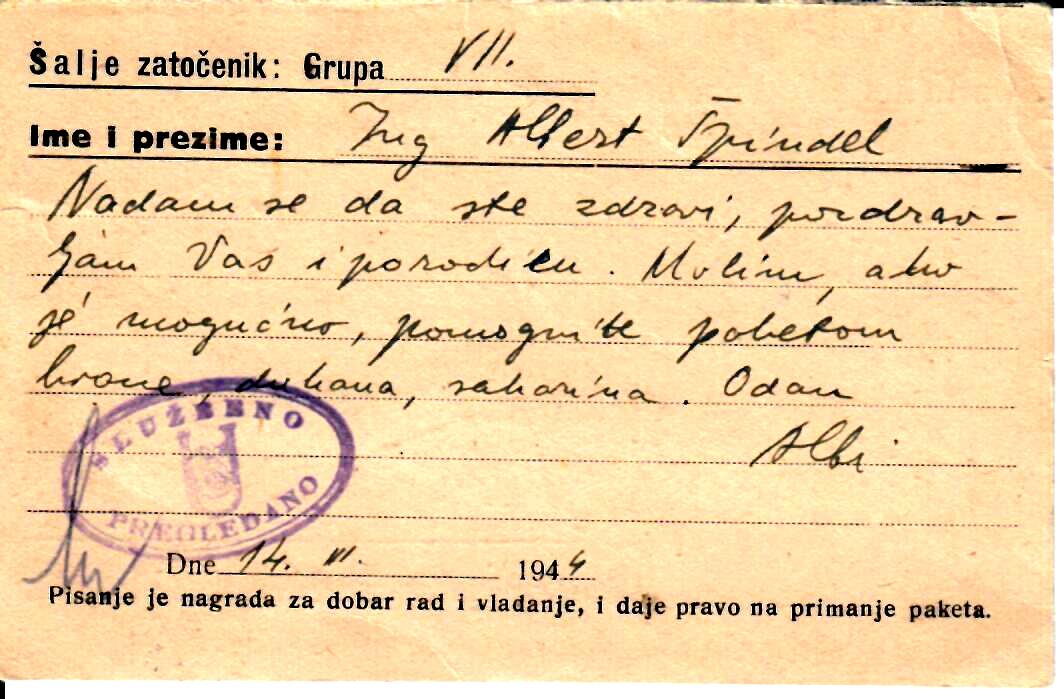 Šalje zatočenik: Grupa VII.
Ime i prezime: Ing Albert Špindel
Nadam se da ste zdravi, pozdrav-
ljam Vas i porodicu. Molim, ako
je mogućno, pomognite paketom
hrane, duhana, saharina. Odan
Albi
SLUŽBENO
PREGLEDANO
Dne 14. III. 1944
Pisanje je nagrada za dobar rad i vladanje, i daje pravo na primanje paketa.